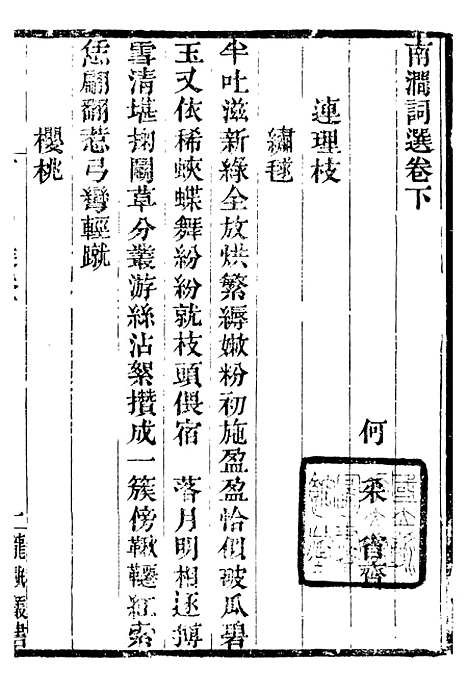 南澗詞選卷下
何采省齋
連理枝
繡毬
半吐滋新綠全放烘繁縟嫩粉初施盈盈恰似破瓜碧
玉又依稀蛺蝶舞紛紛就枝頭偎宿　落月明相逐搏
雪清堪掬鬬草分叢游絲沾絮攢成一簇傍鞦韆紅索
恁翩翻惹弓彎輕蹴
櫻桃